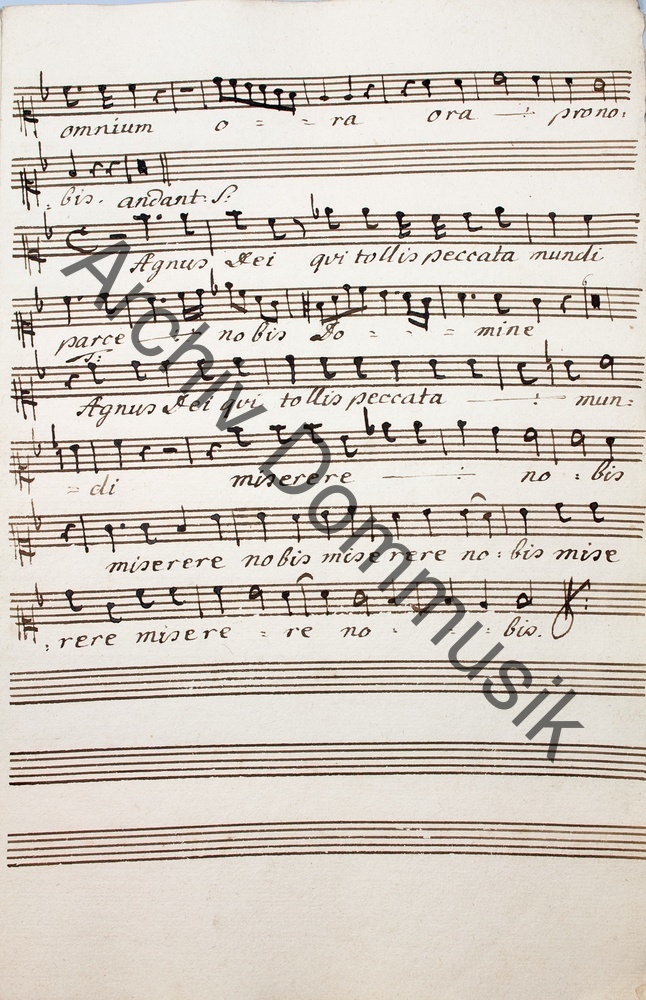 omnium o - - ra ora pro no:
: bis. andant. S:
Agnus Dei qui tollis peccata mundi
parce nobis Do - - - mine
S:
Agnus Dei qui tollis peccata mun:
- di miserere no : bis
miserere nobis miserere no : bis mise
: rere miserere - re no - - - bis.
Archiv Dommusik